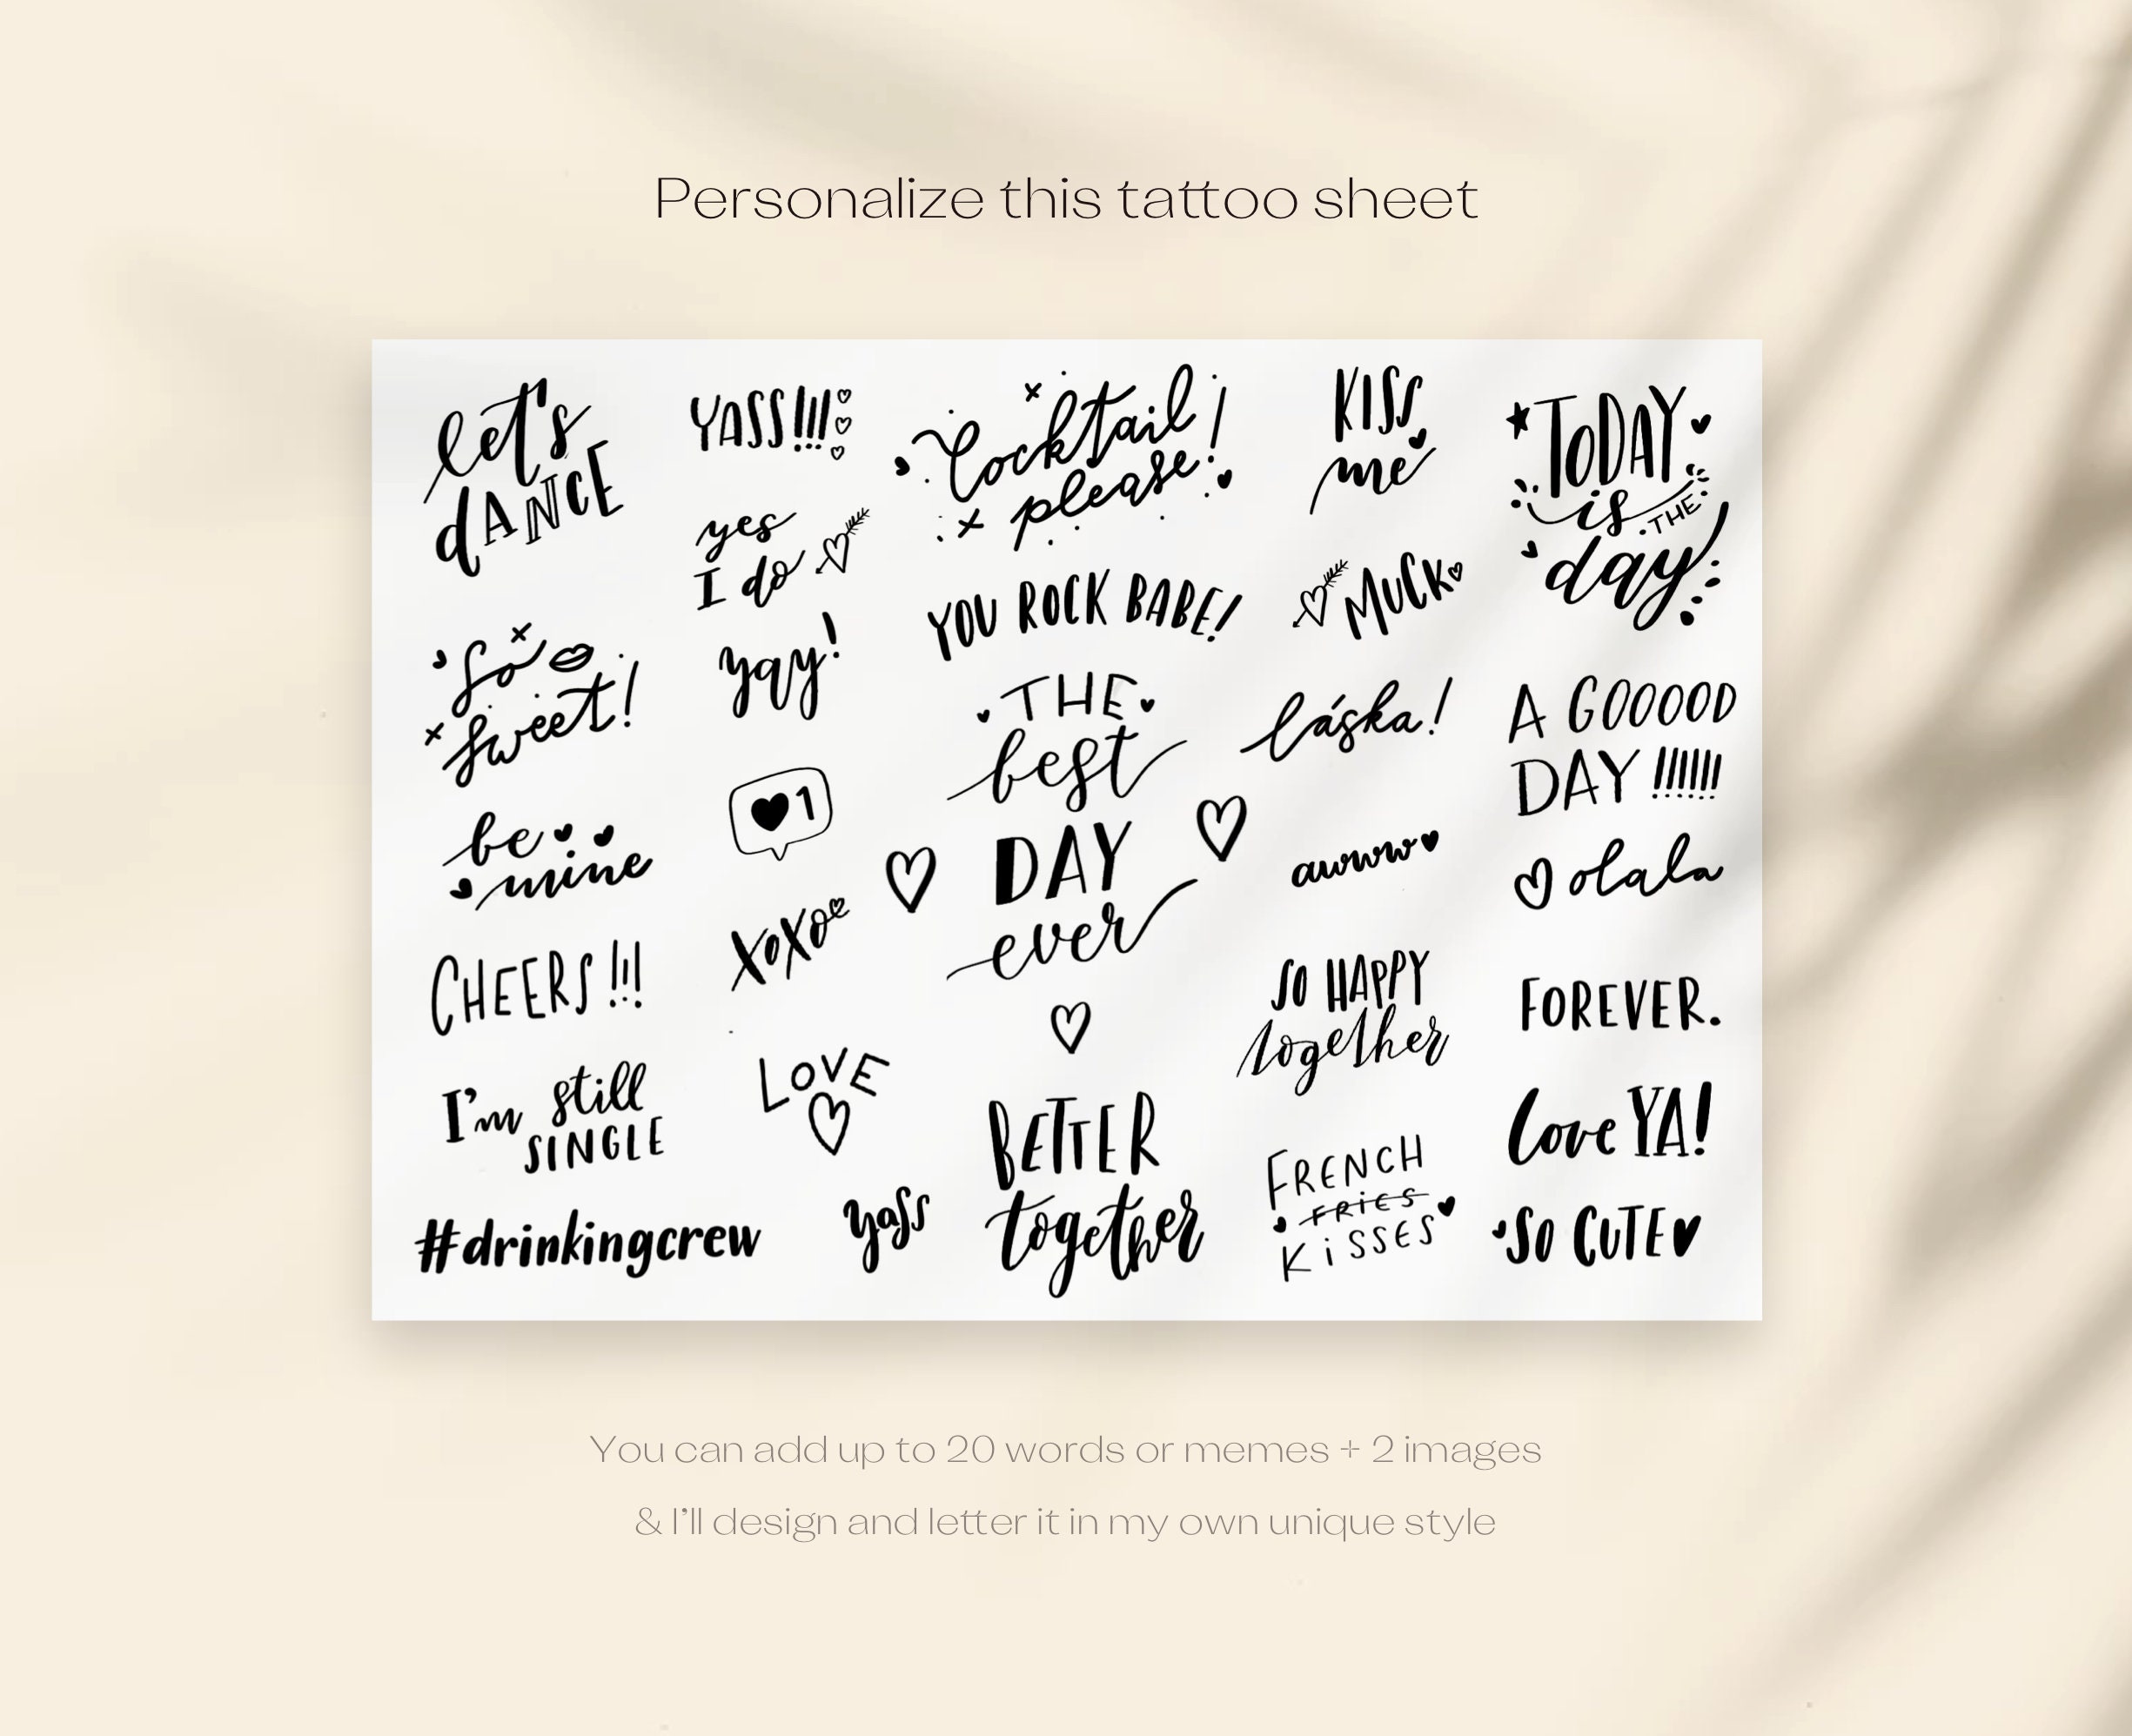 Personalize this tattoo sheet
let's
dANCE
YASS!!!
Cocktail!
please!
KISS
me
TODAY
is THE
day
yes
I do
YOU ROCK BABE!
MUCK
So
sweet!
yay!
THE
best
DAY
ever
láska!
A GOOOOD
DAY !!!!!!
be
mine
1
awww
olala
CHEERS!!!
XOXO
SO HAPPY
together
FOREVER.
I'm still
SINGLE
LOVE
BETTER
together
FRENCH
FRIES
KiSSES
love YA!
#drinkingcrew
yass
SO CUTE
You can add up to 20 words or memes + 2 images
& I'll design and letter it in my own unique style